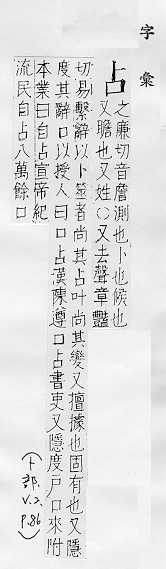 字彙
占之廉切音詹測也卜也候也
又瞻也又姓○又去聲章豔
切易繫辭以卜筮者尚其占叶尚其變又擅據也固有也又隱
度其辭口以授人曰口占漢陳遵口占書吏又隱度戶口來附
本業曰自占宣帝紀
流民自占八萬餘口
(卜部,
V.2,
P.86)